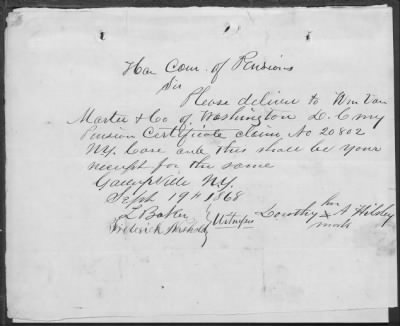 Hon Com. of Pensions
Sir
Please deliver to Wm Van
Marter & Co. of Washington D. C my
Pension Certificate claim, No 20802
N.Y. Case and this shall be your
receipt for the same
N.Y.
Sept 19th 1868
L Baker
Frederick
Witness
Dorothy her A Hilsley
X
mark